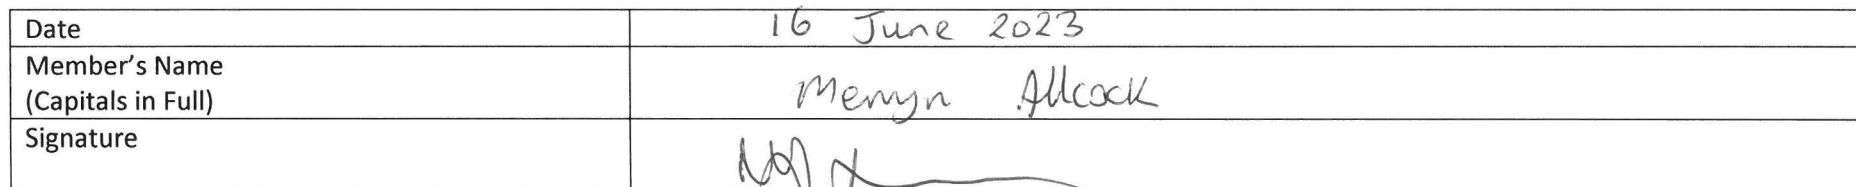 Date 16 June 2023
Member's Name
(Capitals in Full) Mervyn Allcock
Signature